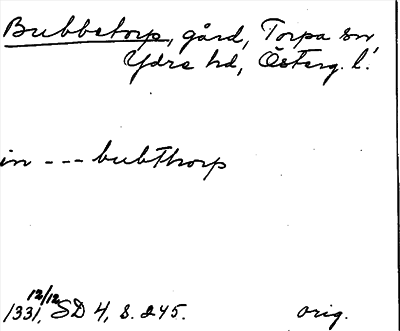 Bubbetorp, gård, Torpa sn,
Ydre hd, Österg. l.
in --- bubthorp
1331 12/12, SD 4, s. 245. orig.